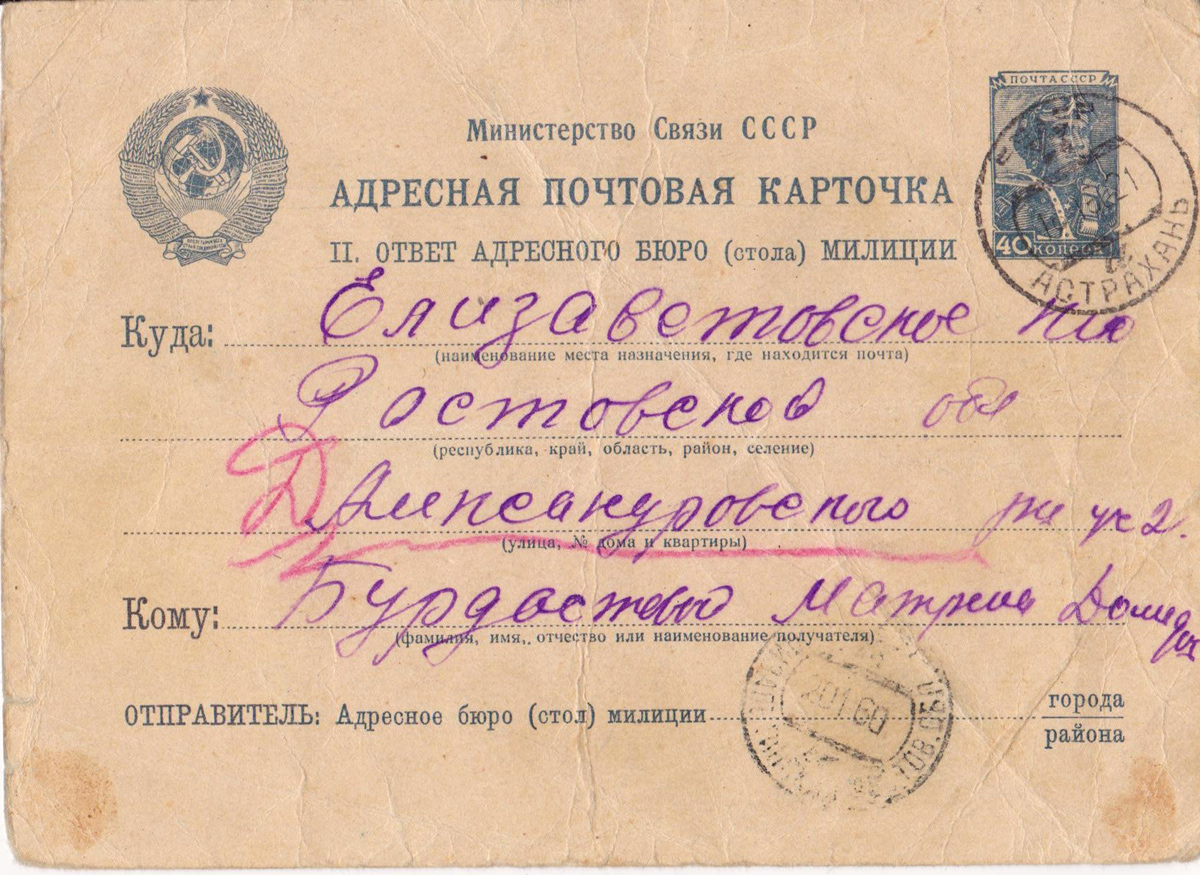 ПОЧТА СССР
Министерство Связи СССР
АДРЕСНАЯ ПОЧТОВАЯ КАРТОЧКА
II. ОТВЕТ АДРЕСНОГО БЮРО (стола) МИЛИЦИИ
40 КОПЕЕК
АСТРАХАНЬ
Куда: Елизаветовское
(наименование места назначения, где находится почта)
Ростовской обл
(республика, край, область, район, селение)
Александровского
(улица, № дома и квартиры)
Кому: Матрена
(фамилия, имя, отчество или наименование получателя)
20 1 60
ОТПРАВИТЕЛЬ: Адресное бюро (стол) милиции
города
района